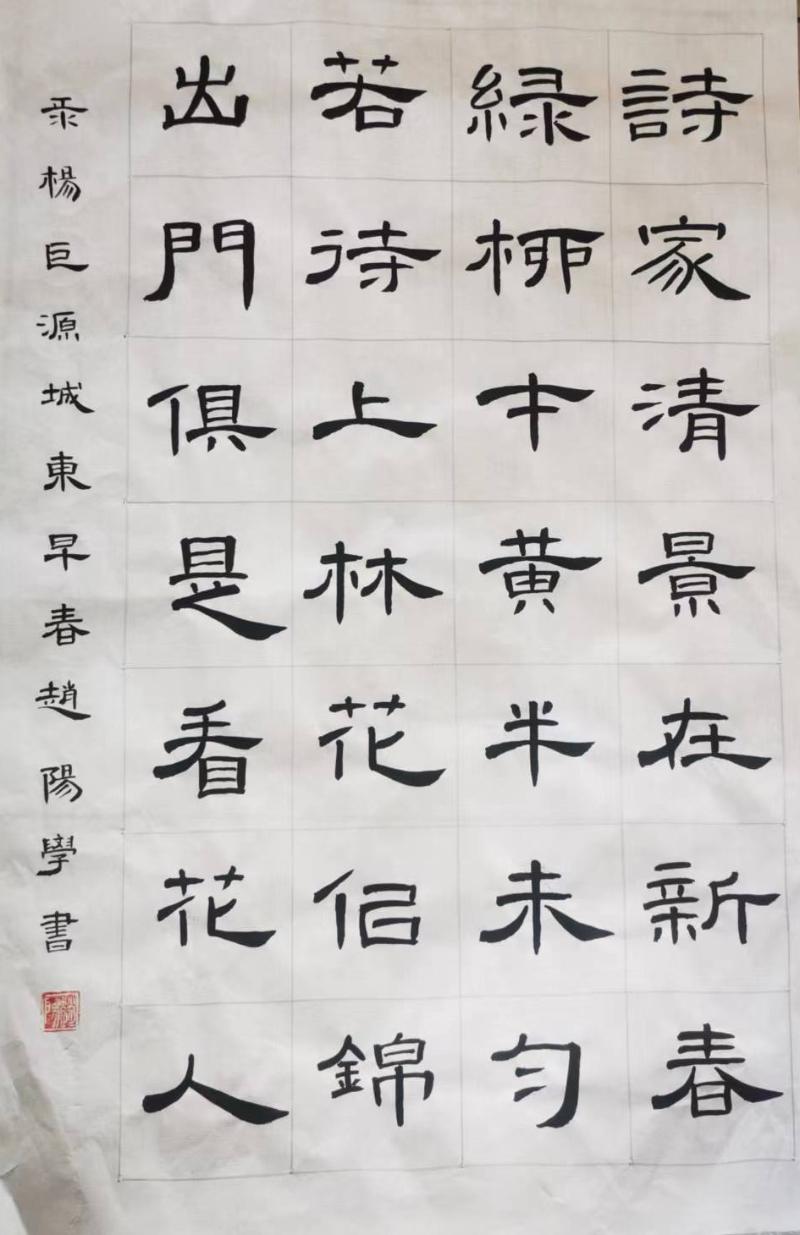 詩家清景在新春
緑柳才黄半未匀
若待上林花佀錦
出門俱是看花人
录楊巨源城東早春趙陽學書